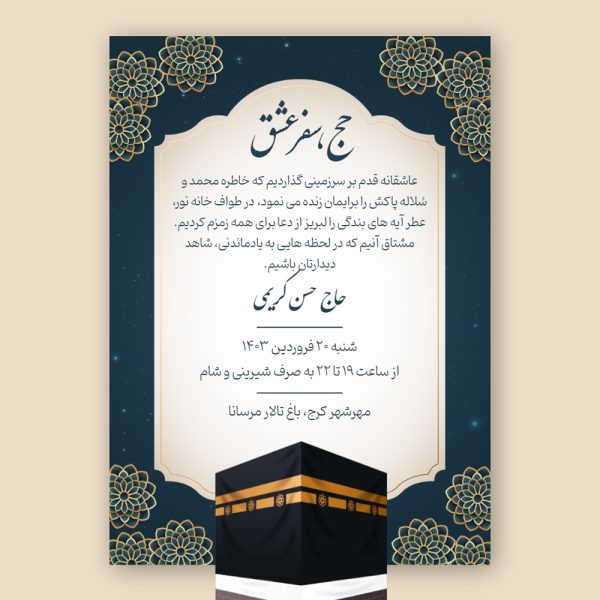 حج ،سفر عشق
عاشقانه قدم بر سرزمینی گذاردیم که خاطره محمد و
سُلاله پاکش را برایمان زنده می نمود، در طواف خانه نور،
عطر آیه های بندگی را لبریز از دعا برای همه زمزم کردیم.
مشتاق آنیم که در لحظه هایی به یادماندنی، شاهد
دیدارتان باشیم.
حاج حسن کریمی
شنبه ۲۰ فروردین ۱۴۰۳
از ساعت ۱۹ تا ۲۲ به صرف شیرینی و شام
مهرشهر کرج، باغ تالار مرسانا